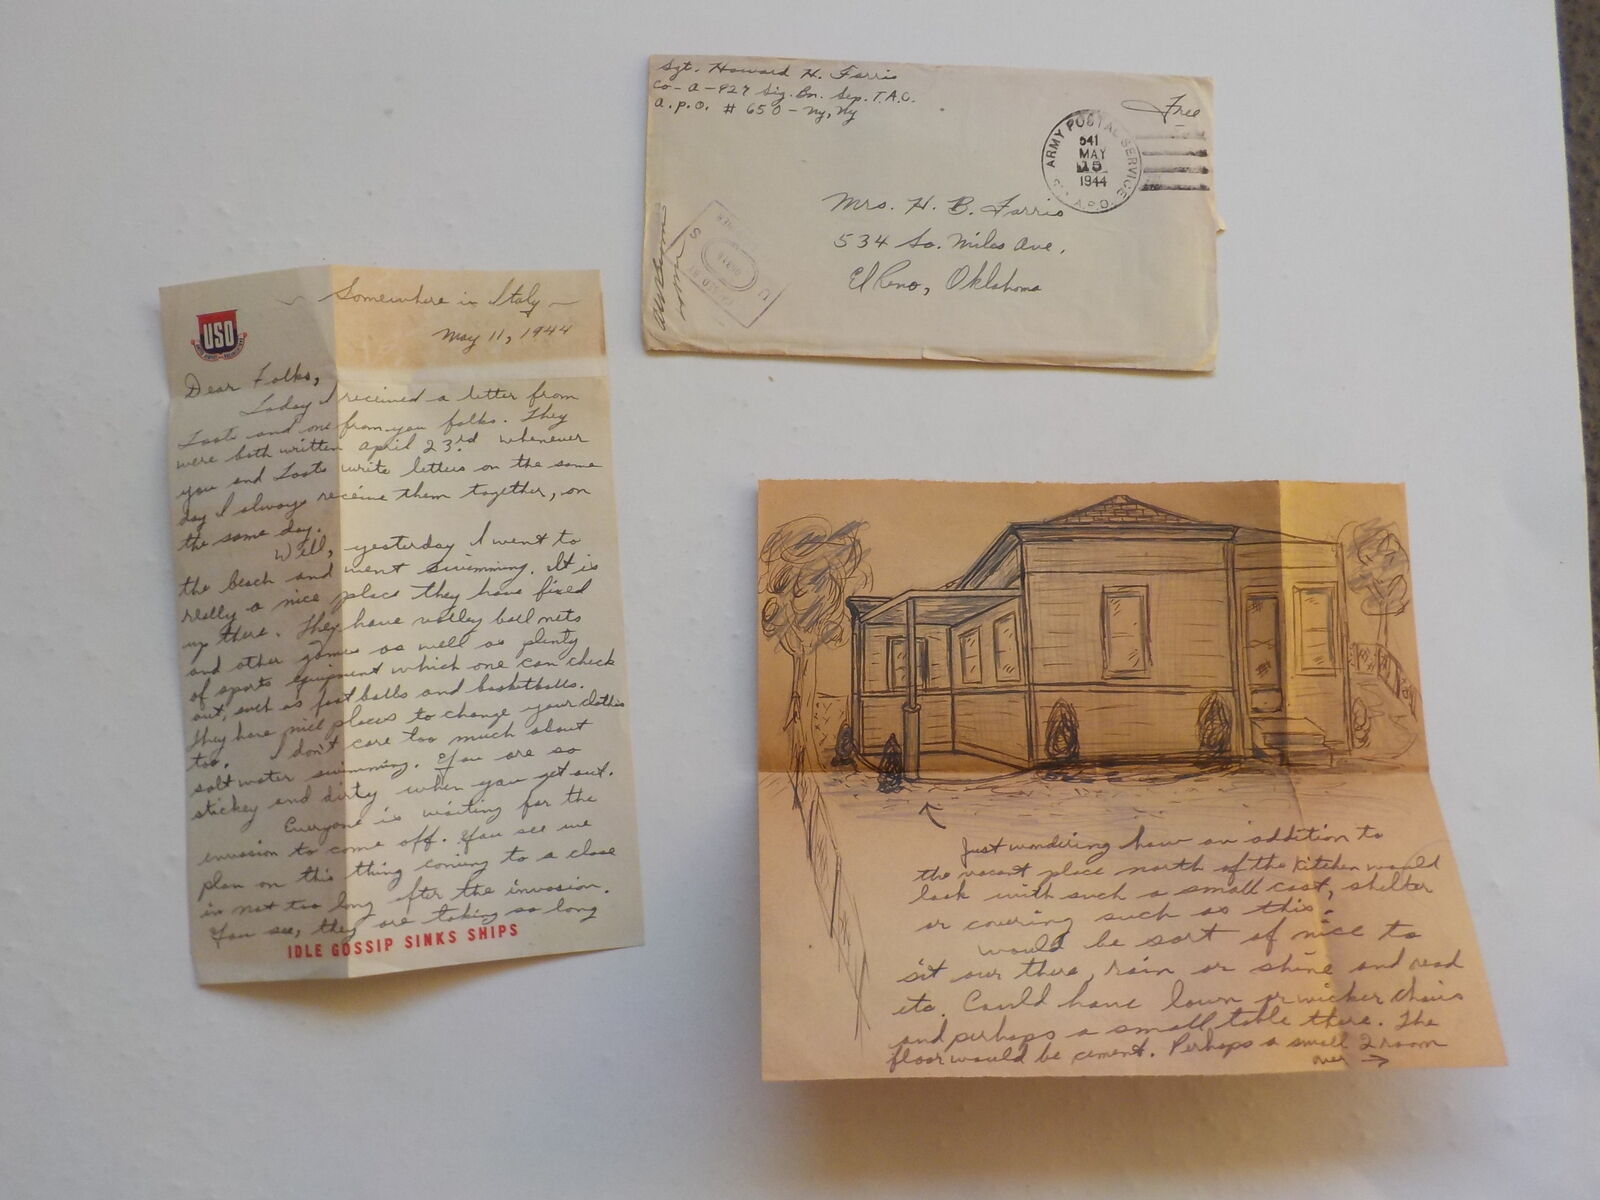 Sgt. Howard H. Farris
Co-A-927 Sig. Bn. Sep. T.A.C.
A.P.O. # 650 - Ny, Ny
Free
ARMY POSTAL SERVICE
541
MAY
15
1944
A.P.O.
Mrs. H. B. Farris
534 So. Miles Ave.
El Reno, Oklahoma
USO
~ Somewhere in Italy ~
May 11, 1944
Dear Folks,
Today I received a letter from
Toots and one from you folks. They
were both written April 23rd. Whenever
you and Toots write letters on the same
day I always receive them together, on
the same day.
Well, yesterday I went to
the beach and went swimming. It is
really a nice place they have fixed
up there. They have volley ball nets
and other games as well as plenty
of sports equipment which one can check
out, such as foot balls and basketballs.
They have nice places to change your clothes
too. I don't care too much about
salt water swimming. You are so
stickey and dirty when you get out.
Everyone is waiting for the
invasion to come off. You see we
plan on this thing coming to a close
in not too long after the invasion.
You see, they are taking so long
IDLE GOSSIP SINKS SHIPS
Just wondering how an addition to
the vacant place north of the kitchen would
look with such a small cost, shelter
or covering such as this.
Would be sort of nice to
sit out there, rain or shine and read
etc. Could have lawn or wicker chairs
and perhaps a small table there. The
floor would be cement. Perhaps a small 2 room
over →